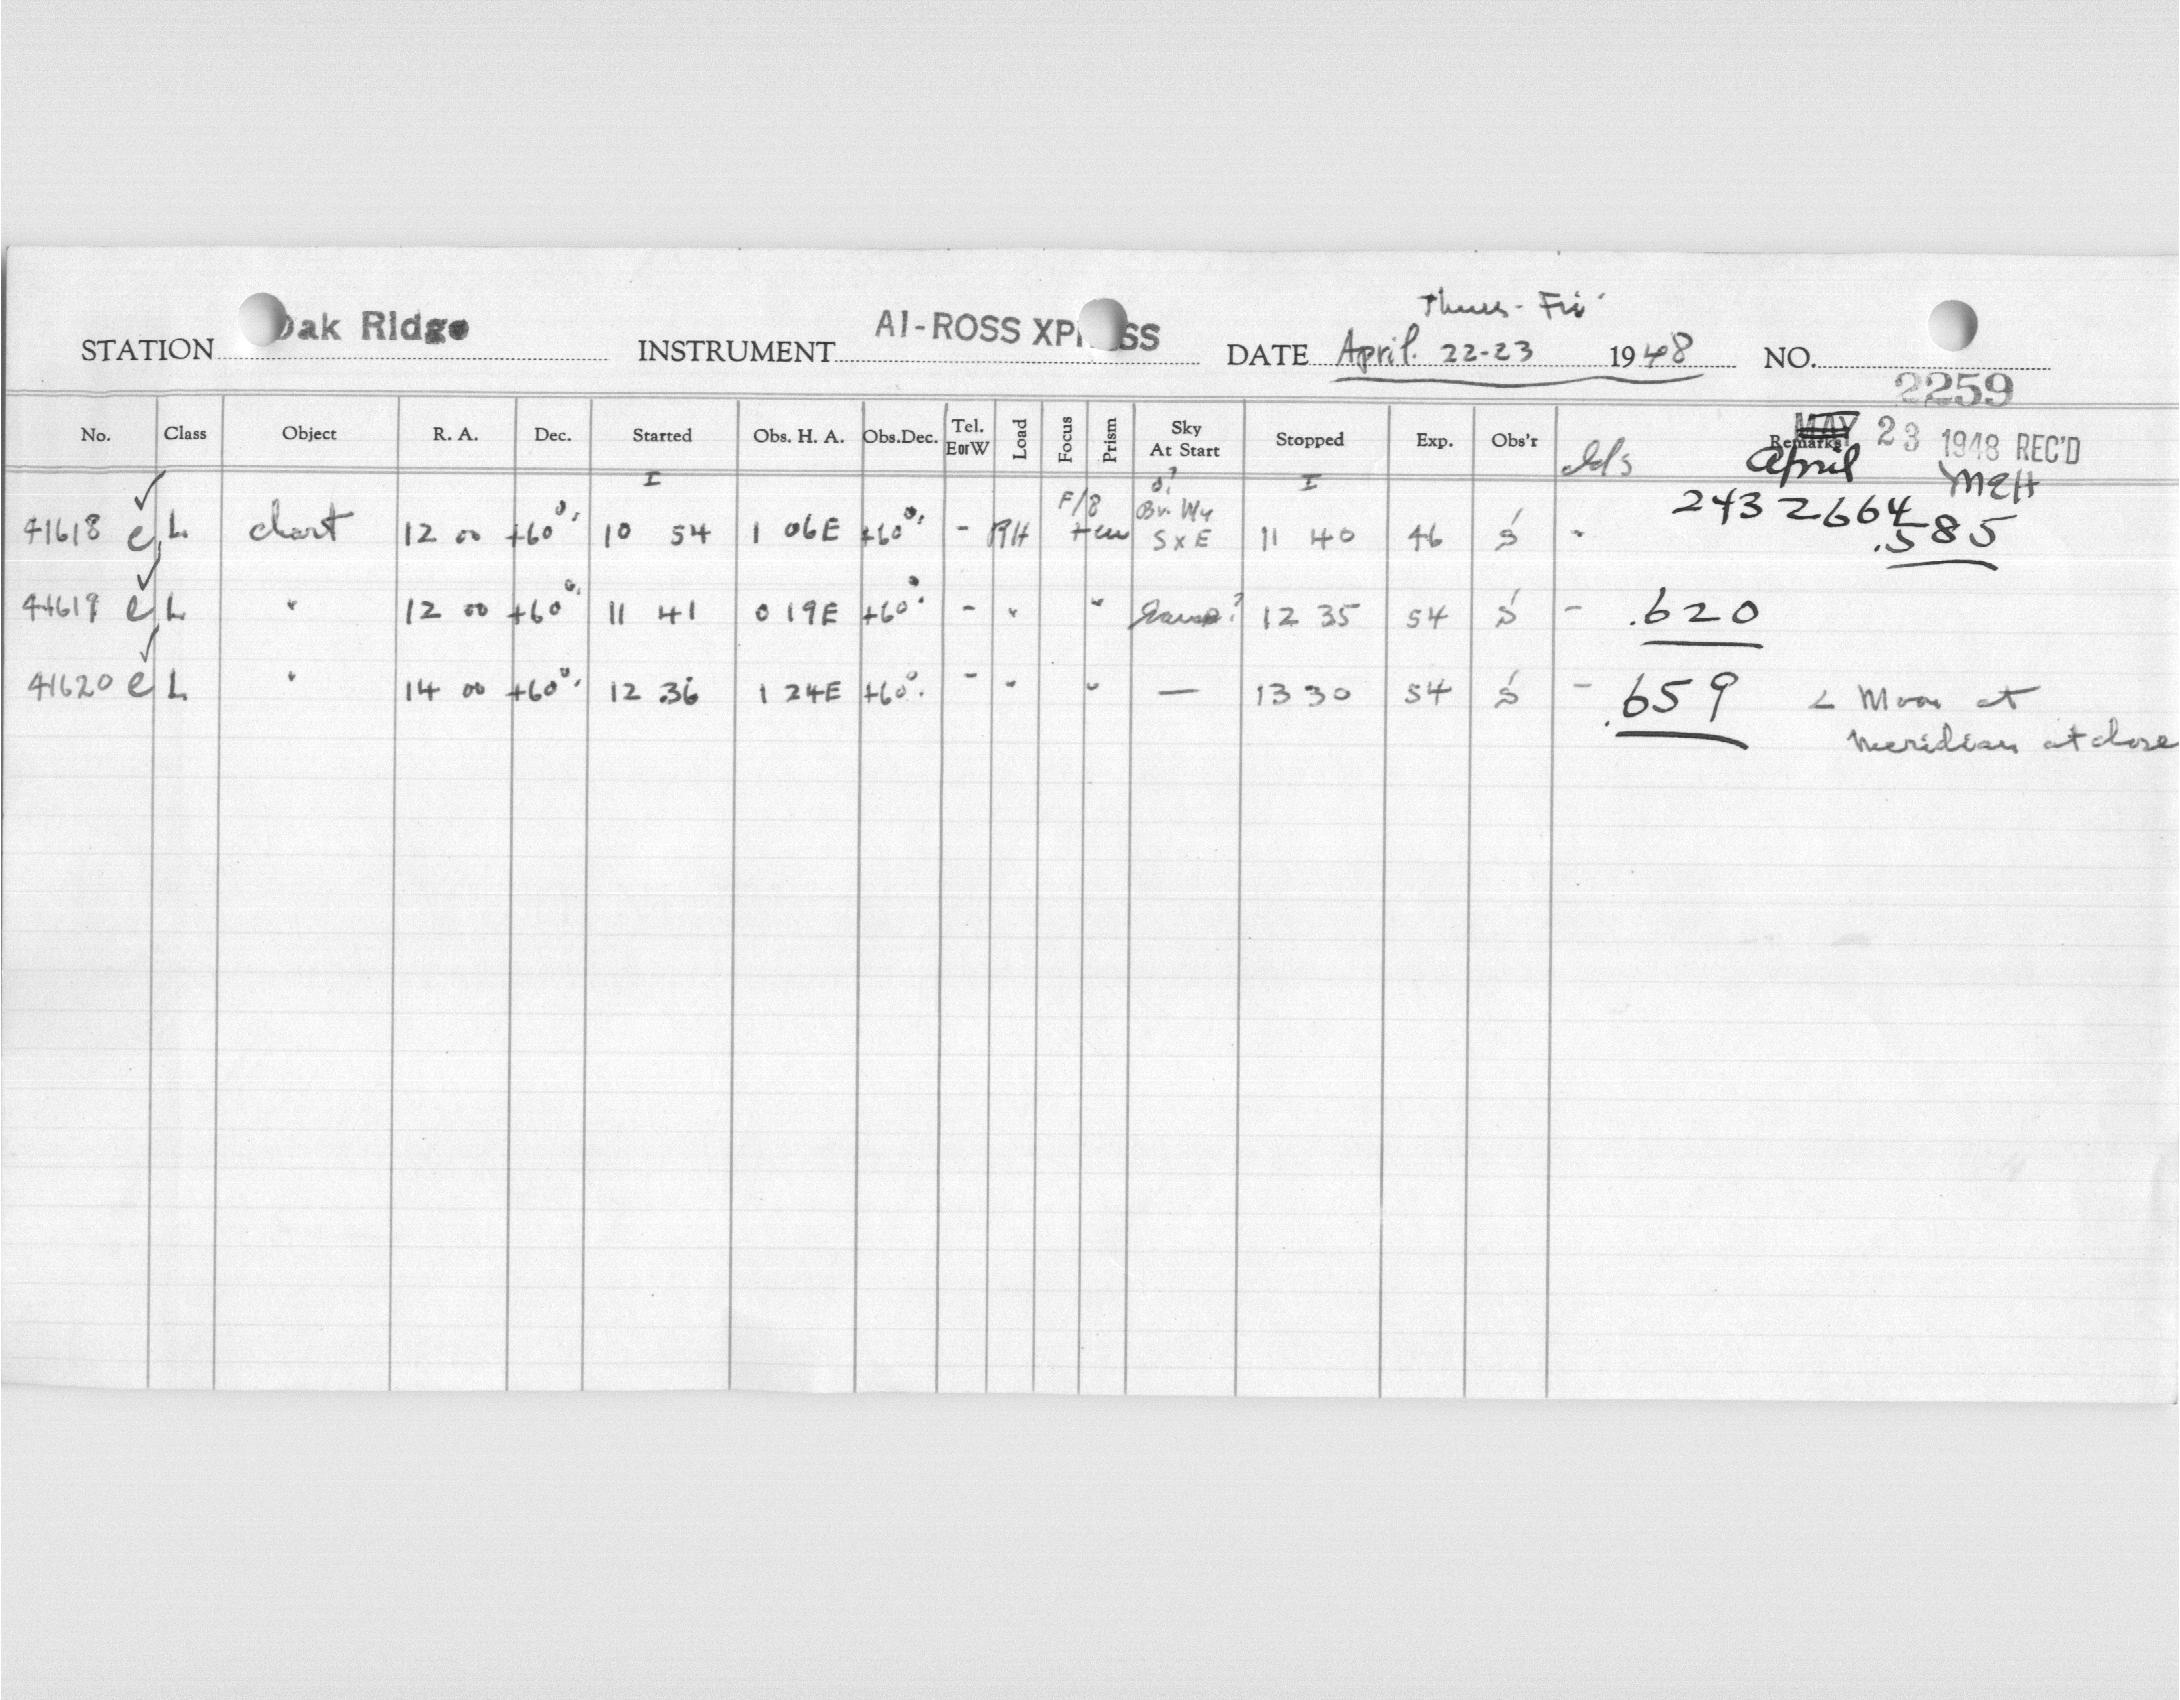 Thurs - Fri
STATION Oak Ridge INSTRUMENT AI-ROSS XPRESS DATE April. 22-23 1948 NO. 2259
No. Class Object R. A. Dec. Started Obs. H. A. Obs.Dec. Tel. EorW Load Focus Prism Sky At Start Stopped Exp. Obs'r Remarks
MAY 23 1948 REC'D
April MEH
I I
41618 e L chart 12 00 +60° 10 54 1 06E +60° - PH F/8 S x E 11 40 46 S - 2432664
.585
41619 e L " 12 00 +60° 11 41 0 19E +60° - " " Same? 12 35 54 S - .620
41620 e L " 14 00 +60° 12 36 1 24E +60° - " " — 13 30 54 S - .659 < Moon at
meridian at close